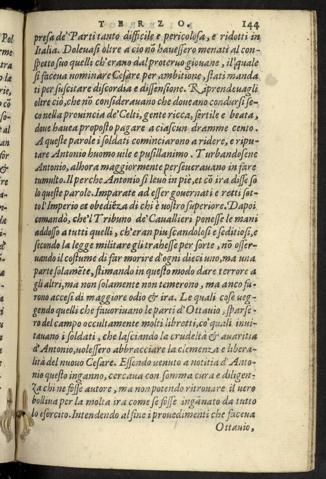 TERZO. 144
presa de' Parti tanto difficile e pericolosa, e ridotti in
Italia. Doleuasi oltre a ciò nō hauessero menati al con-
spetto suo quelli ch'erano dal proteruo giouane, il quale
si faceua nominare Cesare per ambitione, stati manda
ti per suscitare discordia e dissensione. Riprendeuagli
oltre ciò, che nō considerauano che doueano condursi se-
co nella prouincia de' Celti, gente ricca, fertile e beata,
doue haueа proposto pagare a ciascun dramme cento.
A queste parole i soldati cominciarono a ridere, e ripu-
tare Antonio huomo uile e pusillanimo. Turbandosene
Antonio, alhora maggiormente perseuerauano in fare
tumulto. Il perche Antonio si leuò in piè, at cō ira disse so
lo queste parole. Imparate ad esser gouernati e retti sot-
to l'Imperio et obediēza di chi è uostro superiore. Dapoi
comandò, che'l Tribuno de' Cauallieri ponesse le mani
addosso a tutti quelli, ch'eran piu scandolosi e seditiosi, e
secondo la legge militare gli trahesse per sorte, nō osser-
uando il costume di far morire d'ogni dieci uno, ma una
parte solamēte, stimando in questo modo dare terrore a
gli altri, ma non solamente non temerono, ma anco fu-
rono accesi di maggiore odio & ira. Le quali cose ueg-
gendo quelli che fauoriuano le parti d'Ottauio, sparse-
ro del campo occultamente molti libretti, co' quali inui-
tauano i soldati, che lasciando la crudeltà & auaritia
d'Antonio, uolessero abbracciare la clemenza e libera-
lità del nuouo Cesare. Essendo uenuto a notitia d'Anto-
nio questo inganno, cercaua con somma cura e diligen-
za chi ne fosse autore, ma non potendo ritrouare il uero
bolliua per la molta ira come se fosse ingānato da tutto
lo esercito. Intendendo al fine i prouedimenti che faceua
Ottauio,